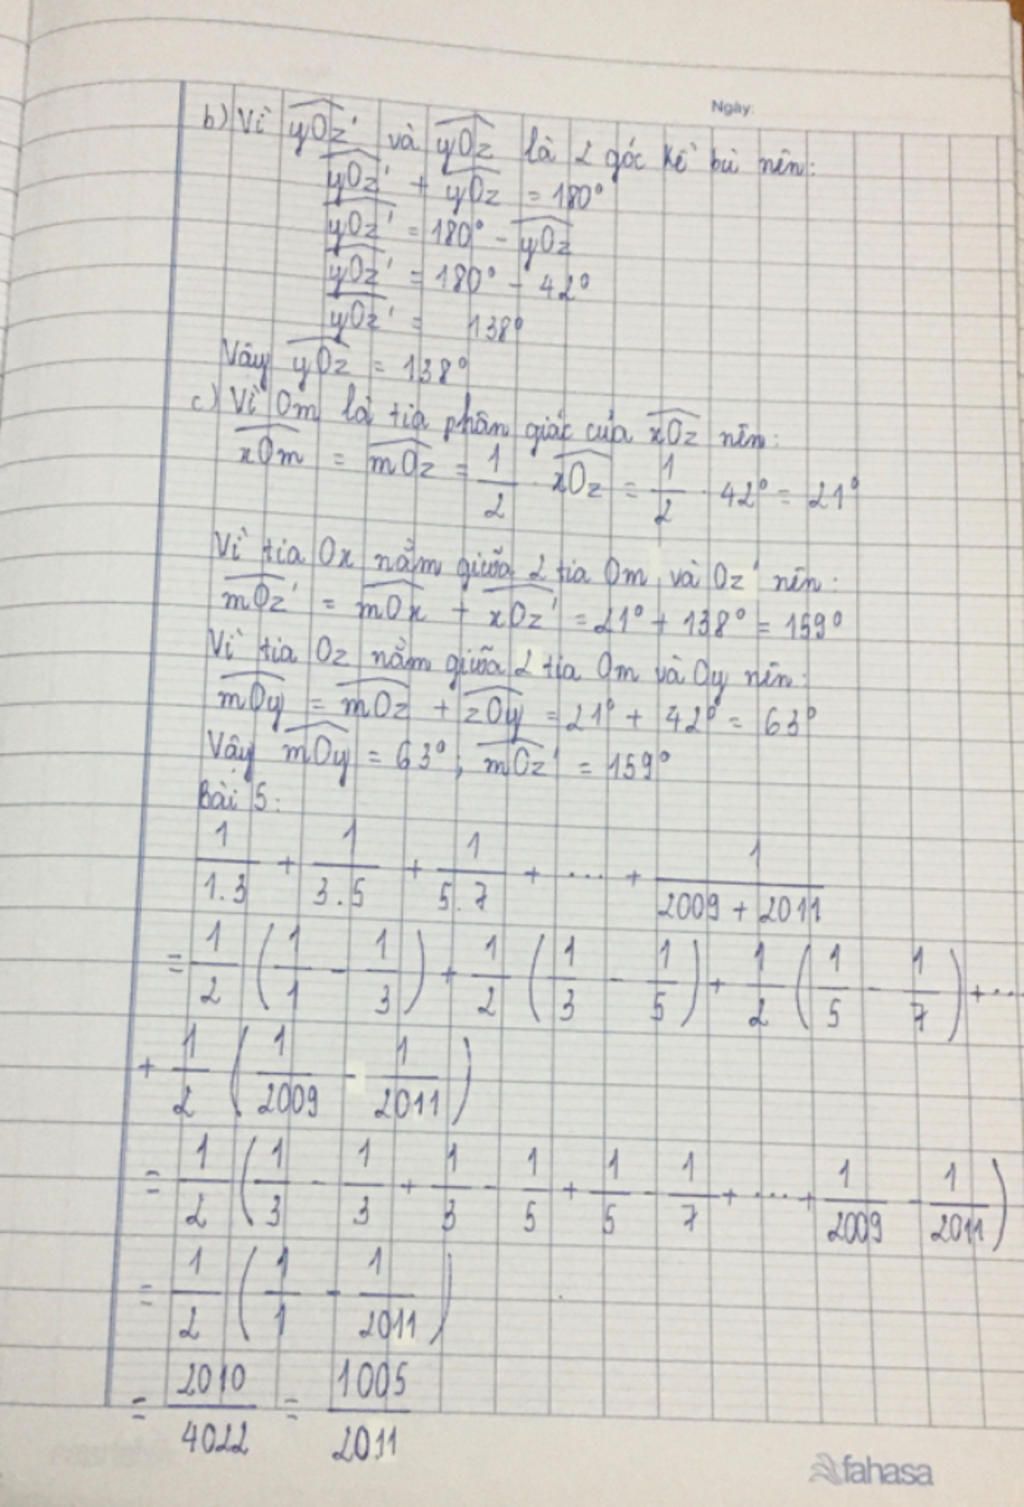 Ngày:
b) Vì yOz' và yOz là 2 góc kề bù nên:
yOz' + yOz = 180°
yOz' = 180° - yOz
yOz' = 180° - 42°
yOz' = 138°
Vậy yOz = 138°
c) Vì Om là tia phân giác của xOz nên:
xOm = mOz = 1/2 . xOz = 1/2 . 42° = 21°
Vì tia Ox nằm giữa 2 tia Om và Oz' nên:
mOz' = mOx + xOz' = 21° + 138° = 159°
Vì tia Oz nằm giữa 2 tia Om và Oy nên:
mOy = mOz + zOy = 21° + 42° = 63°
Vậy mOy = 63°; mOz' = 159°
Bài 5:
1/1.3 + 1/3.5 + 1/5.7 + ... + 1/2009 + 2011
= 1/2 (1/1 - 1/3) + 1/2 (1/3 - 1/5) + 1/2 (1/5 - 1/7) + ...
+ 1/2 (1/2009 - 1/2011)
= 1/2 (1/3 - 1/3 + 1/3 - 1/5 + 1/5 - 1/7 + ... + 1/2009 - 1/2011)
= 1/2 (1/1 - 1/2011)
= 2010/4022 = 1005/2011
fahasa